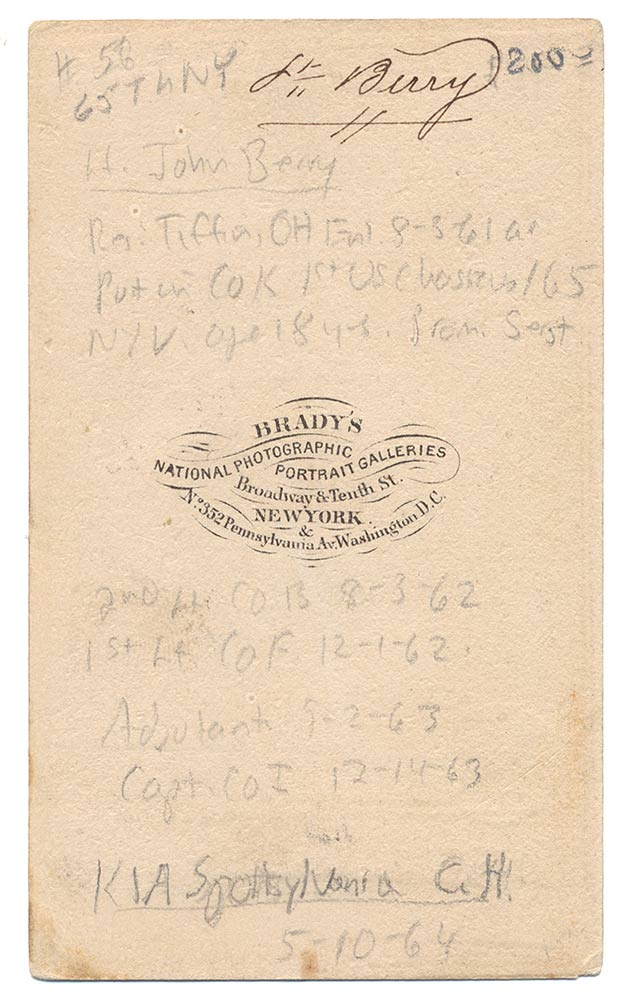 # 58
65TH NY
Lt Berry
$200
Lt. John Berry
Res: Tiffin, OH Enl. 8-3-61 as
Pvt in Co K 1st US Chasseurs/65
NYV. age 18 yrs. Prom. Sergt
BRADY'S
NATIONAL PHOTOGRAPHIC
PORTRAIT GALLERIES
Broadway & Tenth St.
NEW YORK
&
No. 352 Pennsylvania Av. Washington D.C.
2nd Lt. Co B 8-3-62
1st Lt Co F. 12-1-62.
Adjutant 5-2-63
Capt. Co I 12-14-63
KIA Spottsylvania C.H.
5-10-64